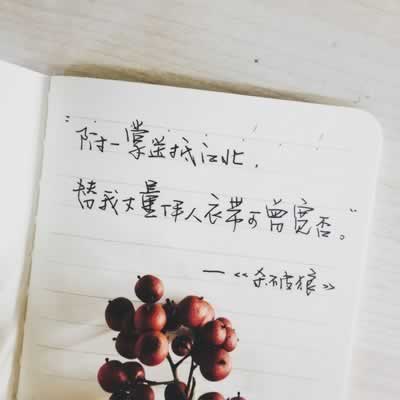 "附一掌送抵江北,
替我丈量伊人衣带可曾宽否。"
—《杀破狼》